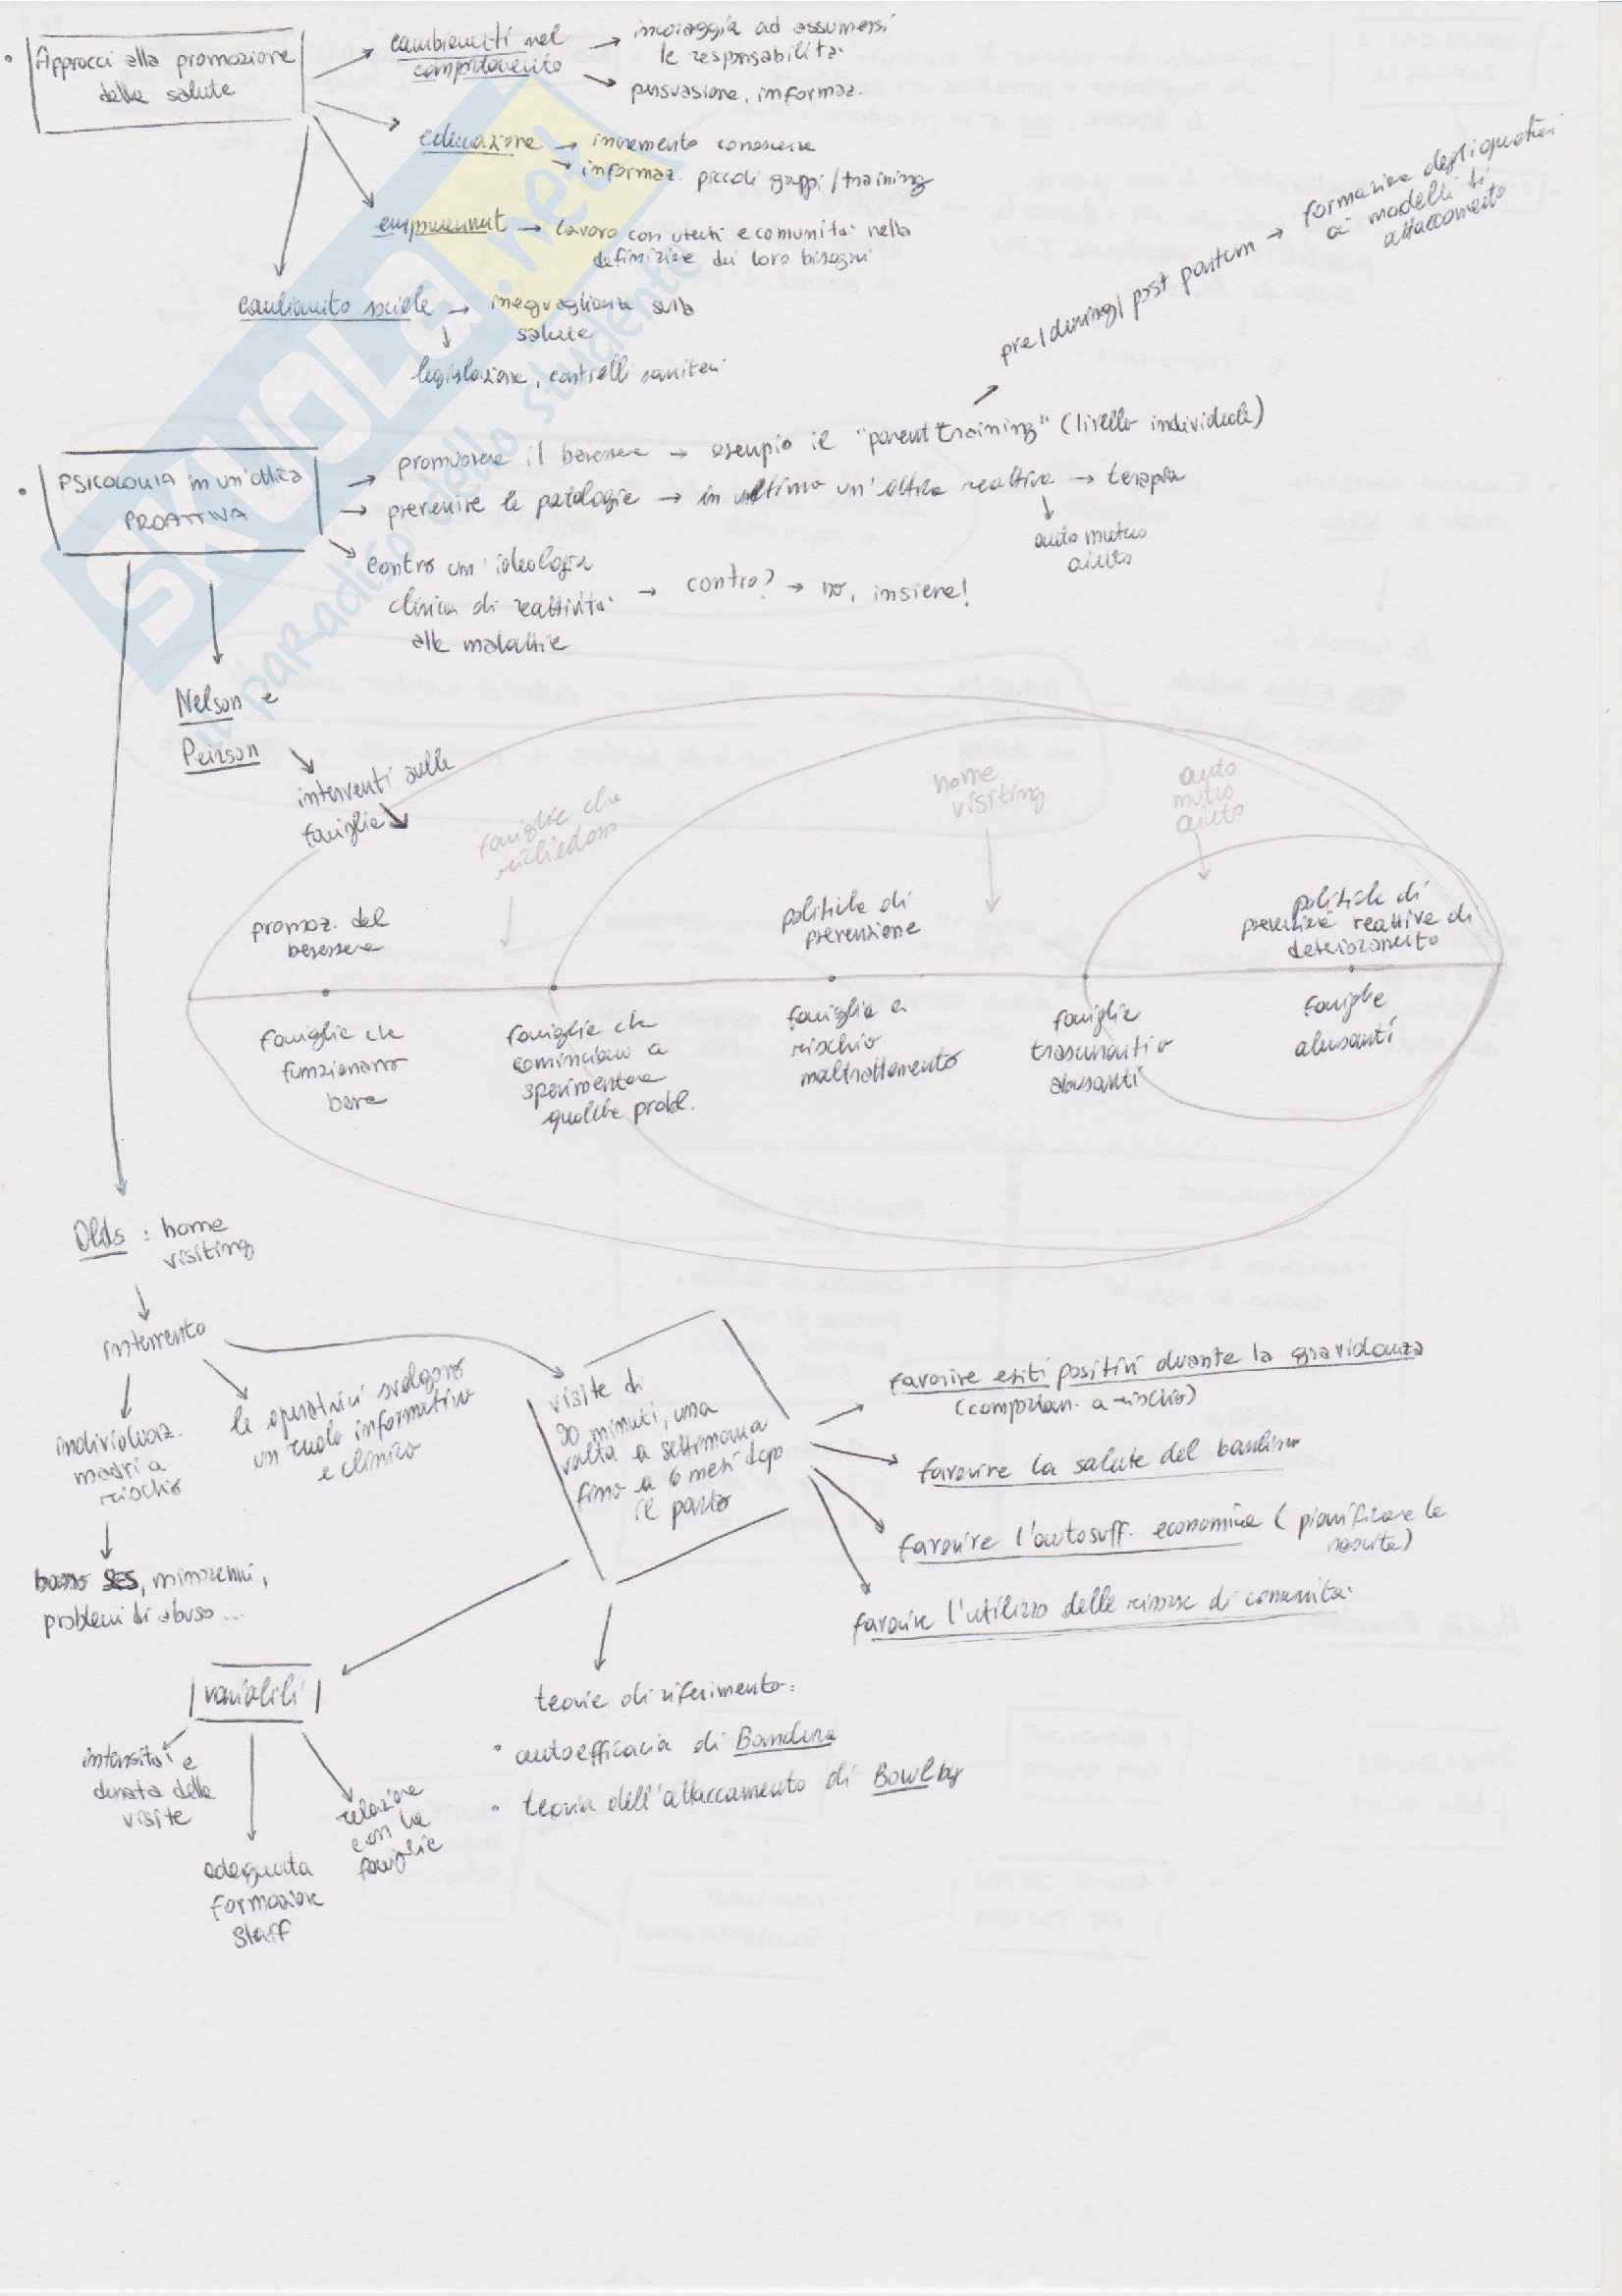 • Approcci alla promozione
della salute
cambiamenti nel
comportamento
→ incoraggia ad assumersi
le responsabilità
→ persuasione, informaz.
educazione → incremento conoscenze
→ informaz. piccoli gruppi / training
empowerment → lavoro con utenti e comunità nella
definizione dei loro bisogni
cambiamento sociale → ineguaglianze sulla
salute
↓
legislazione, controlli sanitari
pre/during/ post partum → formazione degli operatori
ai modelli di
attaccamento
• PSICOLOGIA in un'ottica
PROATTIVA
→ promuovere il benessere → esempio il "parent training" (livello individuale)
→ prevenire le patologie → in ultimo un'ottica reattiva → terapia
↓
auto mutuo
aiuto
contro un'ideologia
clinica di reattività
alle malattie
→ contro? → no, insieme!
Nelson e
Peirson
interventi sulle
famiglie
famiglie che
richiedono
home
visiting
auto
mutuo
aiuto
promoz. del
benessere
politiche di
prevenzione
politiche di
prevenzione reattive di
deterioramento
famiglie che
funzionano
bene
famiglie che
cominciano a
sperimentare
qualche probl.
famiglie a
rischio
maltrattamento
famiglie
trascuranti o
abusanti
famiglie
abusanti
Olds : home
visiting
intervento
individuaz.
madri a
rischio
basso SES, minorenni,
problemi di abuso ...
le operatrici svolgono
un ruolo informativo
e clinico
visite di
90 minuti, una
volta a settimana
fino a 6 mesi dopo
il parto
favorire esiti positivi durante la gravidanza
(comportam. a rischio)
favorire la salute del bambino
favorire l'autosuff. economica (pianificare le
nascite)
favorire l'utilizzo delle risorse di comunità
variabili
intensità e
durata delle
visite
adeguata
formazione
staff
relazione
con la
famiglie
teorie di riferimento:
• autoefficacia di Bandura
• teoria dell'attaccamento di Bowlby
SKUOLA.net
il paradiso dello studente